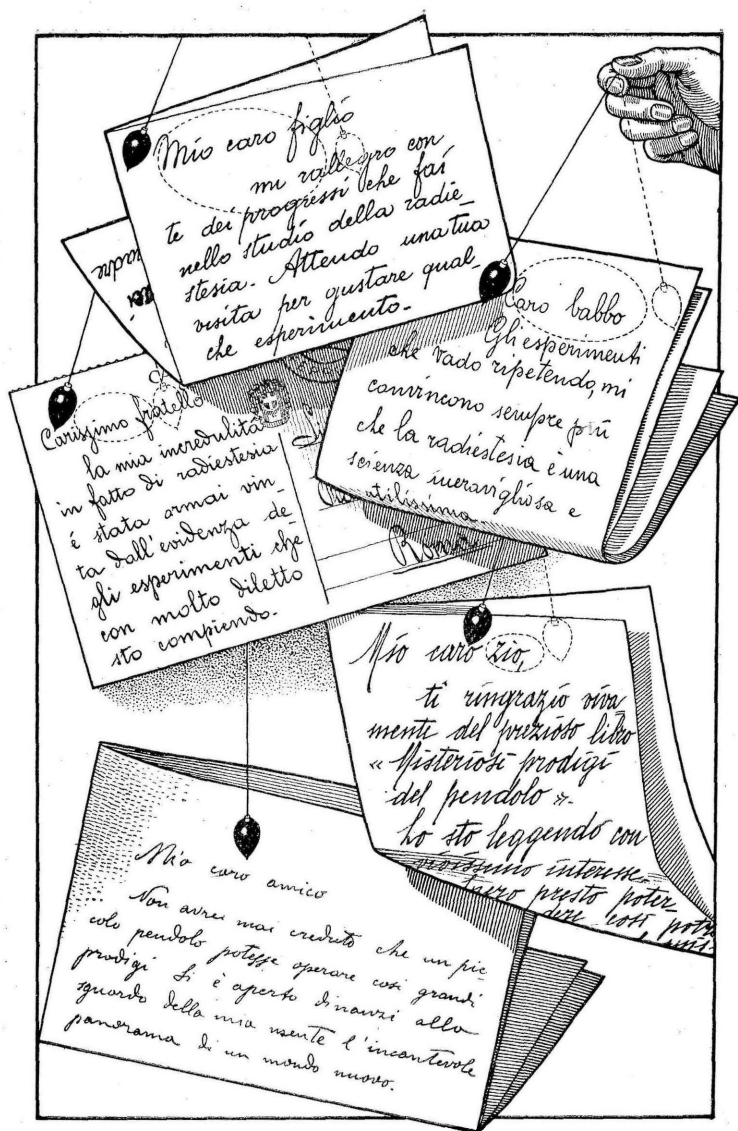 Mio caro figlio
mi rallegro con
te dei progressi che fai
nello studio della radie-
stesia. Attendo una tua
visita per gustare qual-
che esperimento.
Caro babbo
Gli esperimenti
che vado ripetendo, mi
convincono sempre più
che la radiestesia è una
scienza meravigliosa e
utilissima.
Carissimo fratello
la mia incredulità
in fatto di radiestesia
è stata ormai vin-
ta dall'evidenza de-
gli esperimenti che
con molto diletto
sto compiendo.
Roma
Mio caro zio,
ti ringrazio viva
mente del prezioso libro
«Misteriosi prodigi
del pendolo».
Lo sto leggendo con
vivissimo interesse.
Spero presto poter-
così
Mio caro amico
Non avrei mai creduto che un pic-
colo pendolo potesse operare così grandi
prodigi Si è aperto dinanzi allo
sguardo della mia mente l'incantevole
panorama di un mondo nuovo.